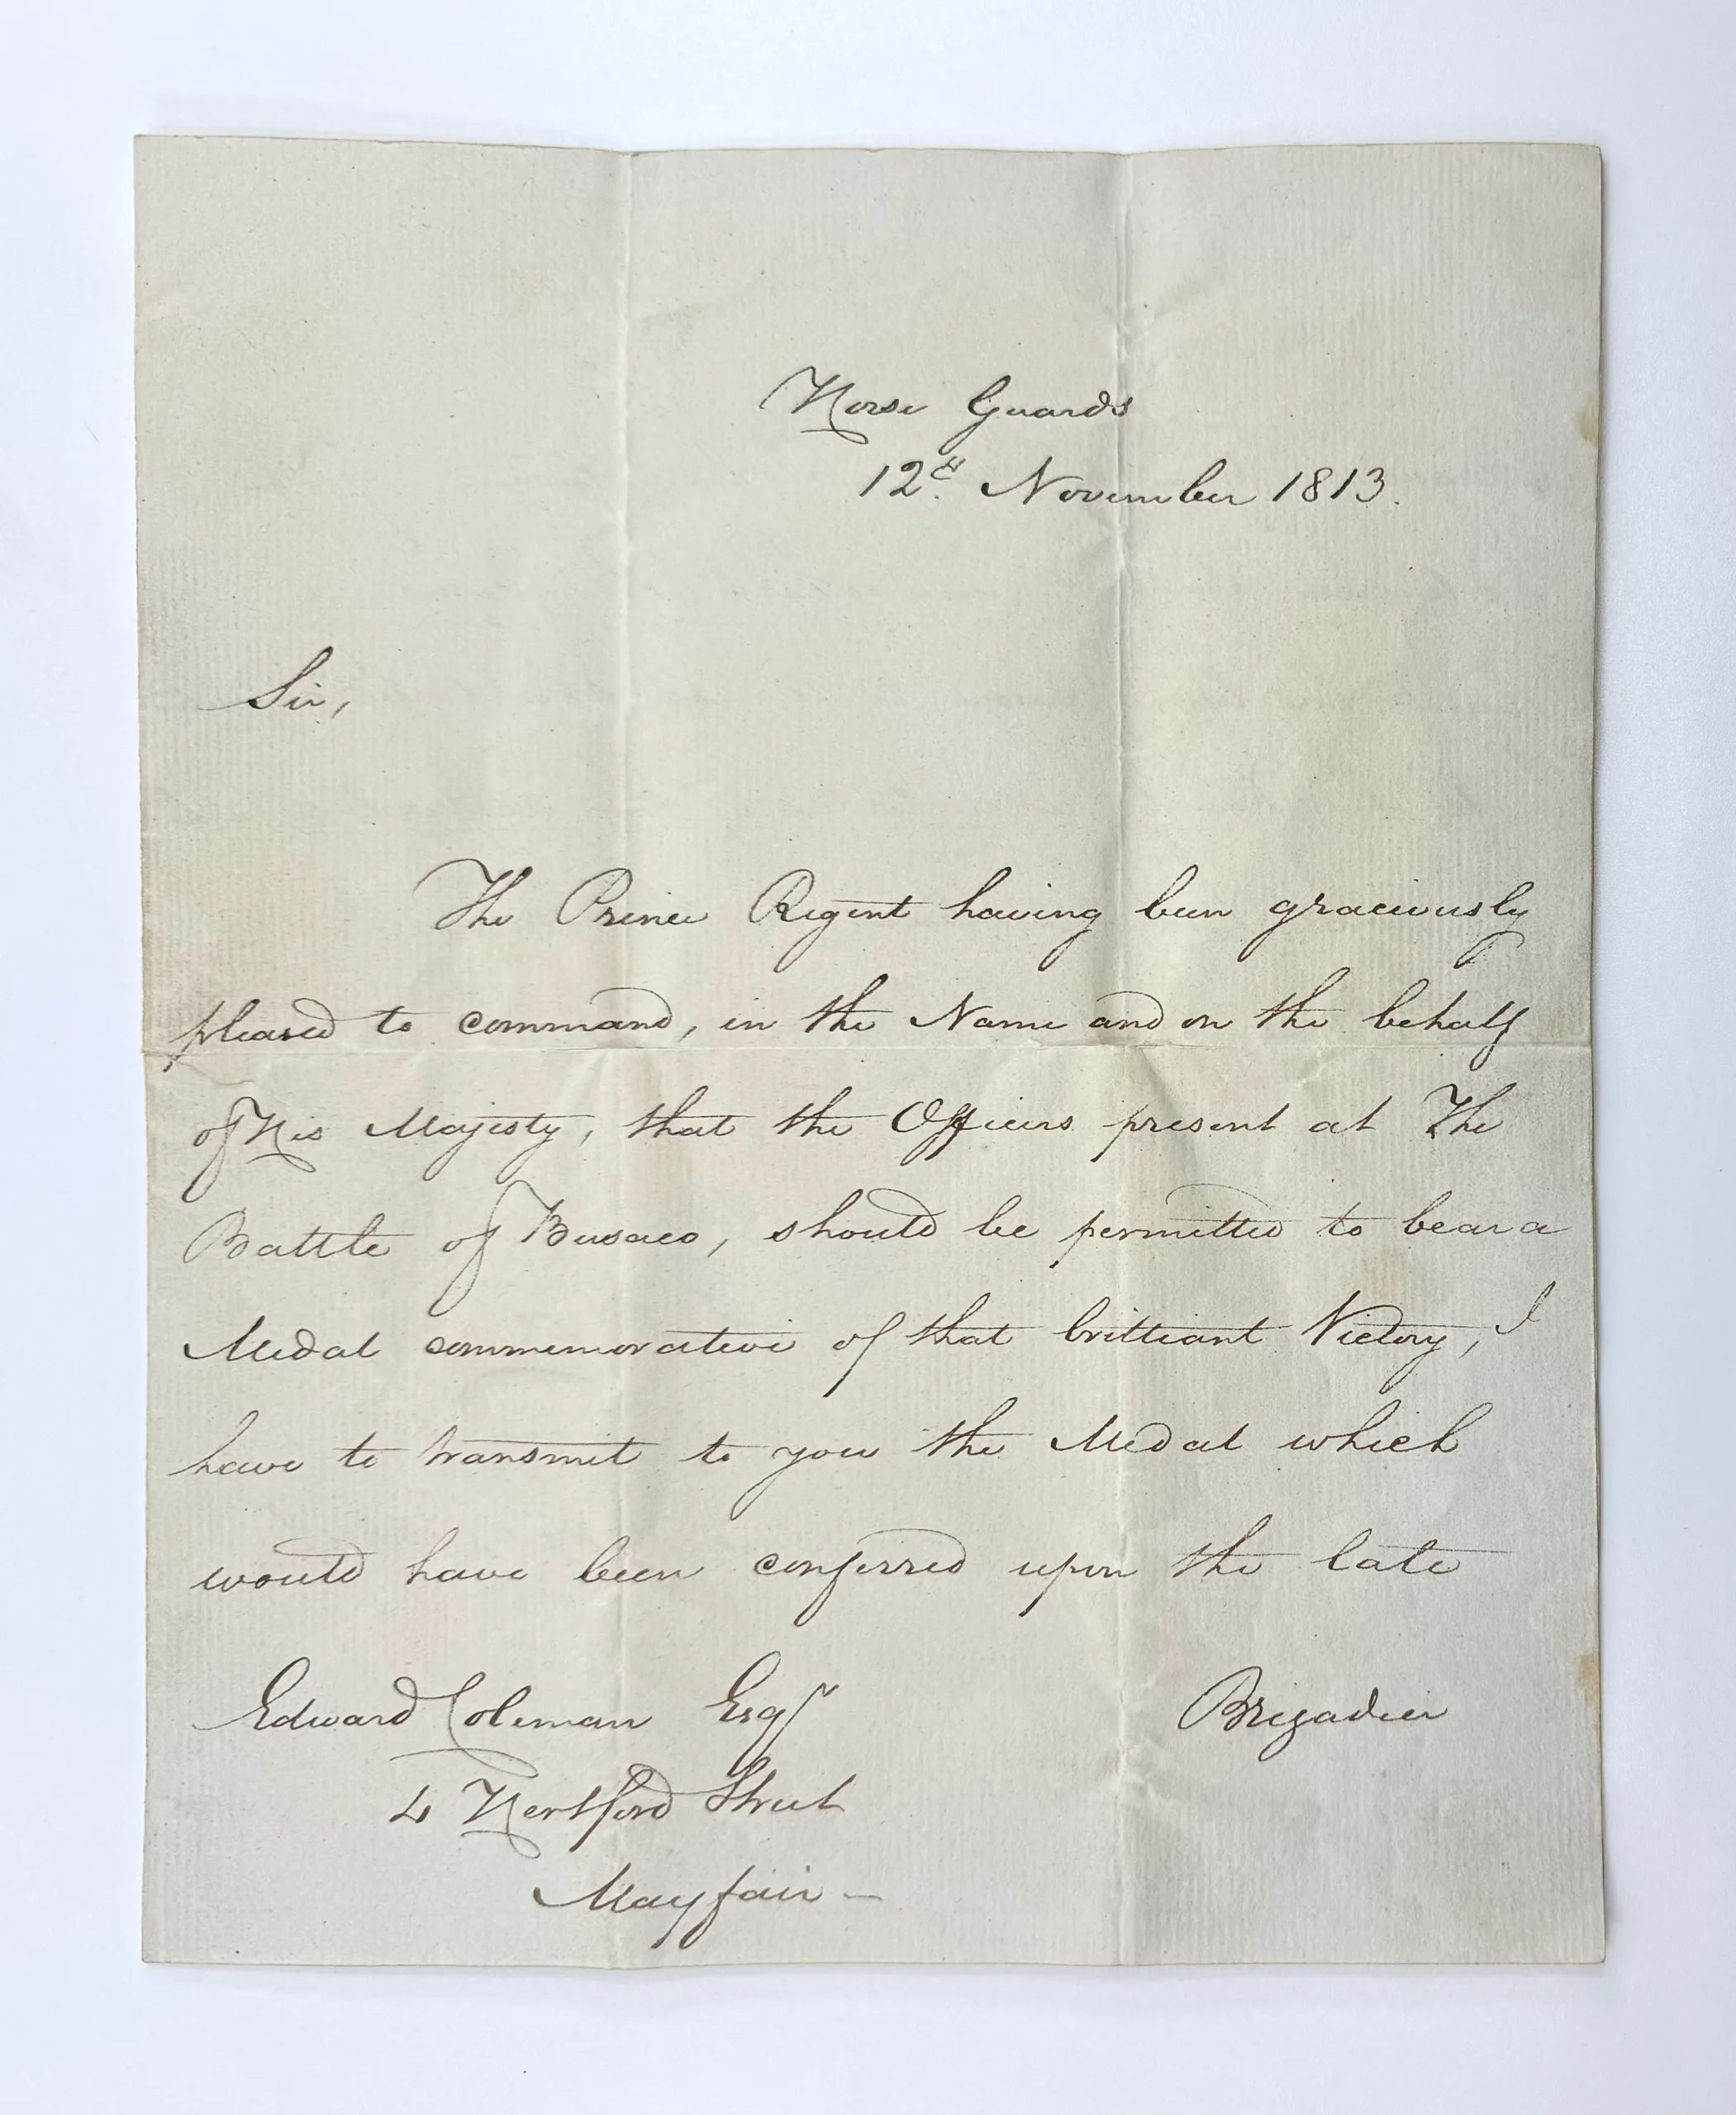 Horse Guards
12th November 1813.
Sir,
The Prince Regent having been graciously
pleased to command, in the Name and on the behalf
of His Majesty, that the Officers present at The
Battle of Busaco, should be permitted to bear a
Medal commemorative of that brilliant Victory, I
have to transmit to you the Medal which
would have been conferred upon the late
Brigadier
Edward Coleman Esqr
4 Hertford Street
Mayfair —